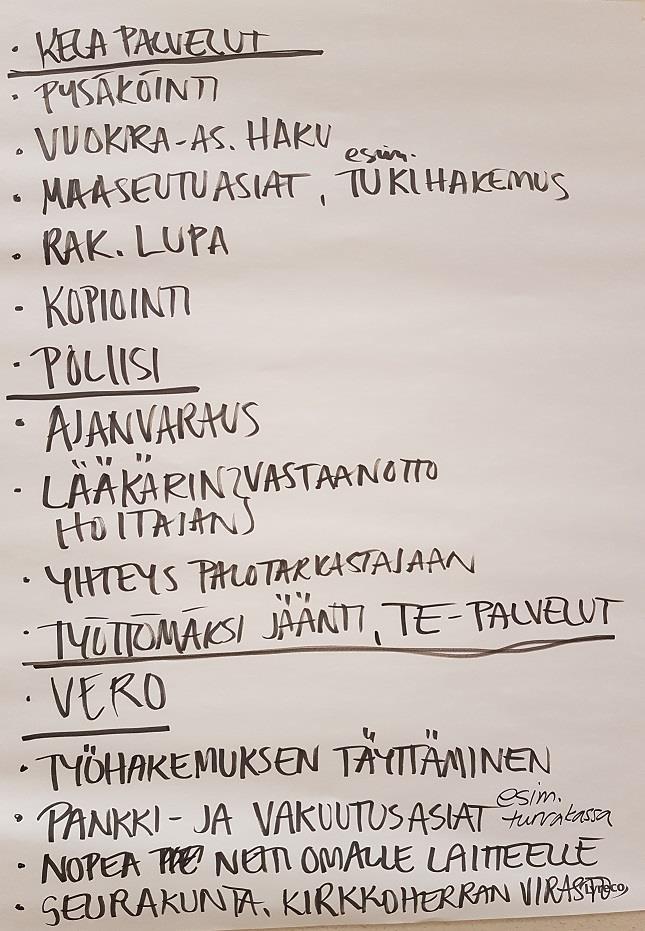 · KELA PALVELUT
· PYSÄKÖINTI
· VUOKRA-AS. HAKU
esim.
· MAASEUTUASIAT, TUKIHAKEMUS
· RAK. LUPA
· KOPIOINTI
· POLIISI
· AJANVARAUS
· LÄÄKÄRIN } VASTAANOTTO
HOITAJAN }
· YHTEYS PALOTARKASTAJAAN
· TYÖTTÖMÄKSI JÄÄNTI, TE-PALVELUT
· VERO
· TYÖHAKEMUKSEN TÄYTTÄMINEN
esim.
· PANKKI- JA VAKUUTUSASIAT turvakassa
· NOPEA NETTI OMALLE LAITTEELLE
· SEURAKUNTA. KIRKKOHERRAN VIRASTO
lyreco